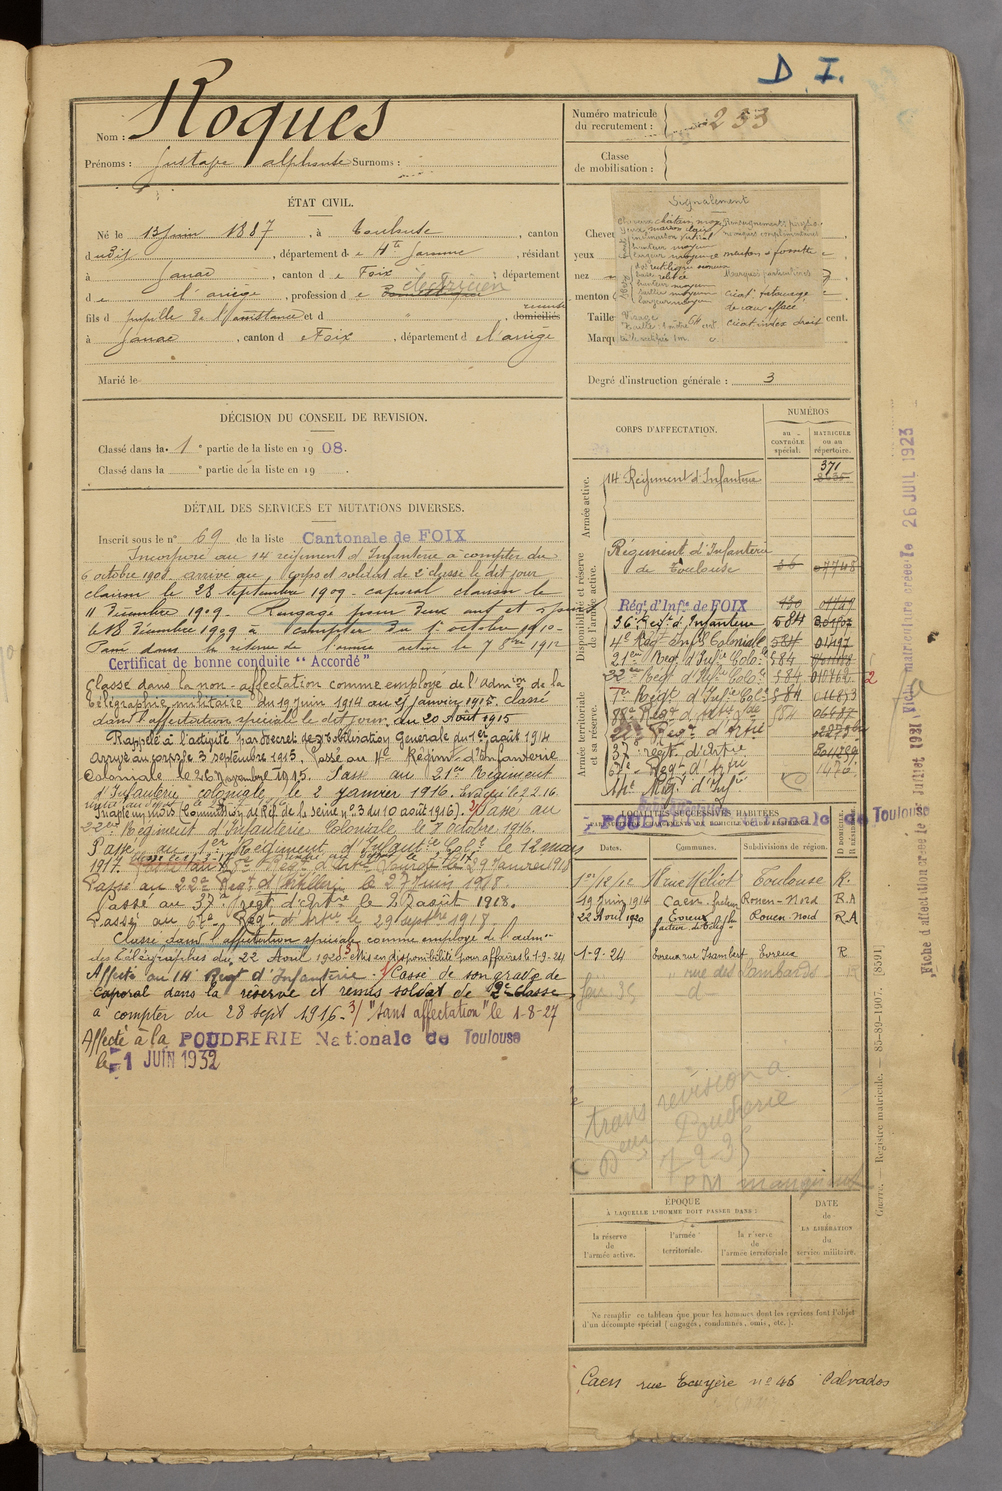 D I.
Nom : Roques
Prénoms : Gustave Alphonse Surnoms :
Numéro matricule du recrutement : 253
Classe de mobilisation :
ÉTAT CIVIL.
Né le 13 Juin 1887, à Toulouse, canton
dudit, département de Hte Garonne, résidant
à Ganac, canton de Foix, département
de l'ariège, profession de électricien
fils d pupille de l'assistance et d , domiciliés
à Ganac, canton d Foix, département d e l'ariège
Marié le
Signalement
Cheveux châtain moy Renseignements physio-
Yeux marron clair nomiques complémentaires
inclinaison vertical
hauteur moyen
largeur moyenne menton à fossette
dos rectiligne
base relevée Marques particulières
hauteur moyenne
saillie moyenne cicat. tatouage
largeur moyenne de cœur effacé
Visage
cicat index droit
Taille 1 mètre cent.
Taille rectifiée 1 m.
Cheveux
yeux
nez
menton
Taille
cent.
Marq
Degré d'instruction générale : 3
DÉCISION DU CONSEIL DE REVISION.
Classé dans la 1e partie de la liste en 1908.
Classé dans la e partie de la liste en 19 .
DÉTAIL DES SERVICES ET MUTATIONS DIVERSES.
Inscrit sous le n° 69 de la liste Cantonale de FOIX
Incorporé au 14 régiment d'Infanterie à compter du
6 octobre 1908. arrivé au corps et soldat de 2e classe le dit jour
clairon le 28 septembre 1909 - caporal clairon le
11 Décembre 1909. Rengagé pour deux ans et
le 18 Décembre 1909 à compter du 1er octobre 1910 -
Passé dans la réserve de l'armée active le 7 8bre 1912
Certificat de bonne conduite "Accordé"
Classé dans la non-affectation comme employé de l'admon de la
télégraphie militaire du 19 juin 1914 au 25 janvier 1915. classé
dans l'affectation spéciale le dit jour, au 20 Août 1915
Rappelé à l'activité par Décret de Mobilisation Générale du 1er août 1914
Arrivé au corps le 3 septembre 1915. Passé au 4e Régimt d'Infanterie
Coloniale le 26 Novembre 1915. Passé au 21e Régiment
d'Infanterie coloniale le 2 janvier 1916. Evacué le 2 2 16
Inapte un mois (Commission de Réf de la Seine n° 3 du 10 août 1916). 2/ Passé au
22e Régiment d'Infanterie Coloniale le 3 octobre 1916.
Passé au 1er Régiment d'Infanterie Col. le 12 mars
1917.
Passé au 88e Régt d'Artie Lourde le 29 Janvier 1918
Passé au 22e Régt d'Artillerie le 27 juin 1918.
Passé au 37e régt d'Artie le 2 août 1918.
Passé au 61e Régt d'Artie le 29 septbre 1918
Classé dans l'affectation spéciale comme employé de l'admon
des Télégraphes du 22 Avril 1920 - Mis en disponibilité pour affaires le 1-9-24
Affecté au 14e Régt d'Infanterie. 1/ Cassé de son grade de
caporal dans la réserve et remis soldat de 2e classe
à compter du 28 sept 1916 - 3/ "Sans affectation" le 1-8-27
Affecté à la POUDRERIE Nationale de Toulouse
le 1 JUIN 1932
CORPS D'AFFECTATION.
NUMÉROS
au CONTRÔLE spécial.
MATRICULE ou au répertoire.
Armée active.
14 Régiment d'Infanterie 371
Disponibilité et réserve de l'armée active.
Régiment d'Infanterie
de Toulouse
Régt d'Infie de FOIX
56e Régt d'Infanterie 584
4e Régt Infie Coloniale 584
21e Régt d'Infie Colole 584
22e Régt d'Infie Colole 584
1er Régt d'Infie Colle 584
88e Régt d'Artie 584
22e Régt d'Artie
37e régt d'Artie
61e Régt d'Artie
14e Régt d'Inf.
Armée territoriale et sa réserve.
LOCALITÉS SUCCESSIVES HABITÉES
POUDRERIE Nationale de Toulouse
Dates. Communes. Subdivisions de région. D. DOMICILE R. RÉSIDENCE
1er/12/12 18 rue Méliot Toulouse R.
19 Juin 1914 Caen - facteur Rouen - Nord R.A
22 Avril 1920 Evreux Rouen Nord R.A
facteur des Télégr
1-9-24 Evreux rue Isambert Evreux R
rue des Lombards R
35 -d-
trans revision a
Poudrerie
PM manquant
ÉPOQUE
À LAQUELLE L'HOMME DOIT PASSER DANS :
DATE
de
LA LIBÉRATION
du
service militaire.
la réserve de l'armée active.
l'armée territoriale.
la réserve de l'armée territoriale
Ne remplir ce tableau que pour les hommes dont les services font l'objet
d'un décompte spécial (engagés, condamnés, omis, etc.).
Caen rue Ecuyère n° 46 Calvados
Guerre. — Registre matricule. — 85-89-1907. [8591]
Fiche matriculaire créée le 26 JUIL 1923
Fiche d'affectation créée le Juillet 1931